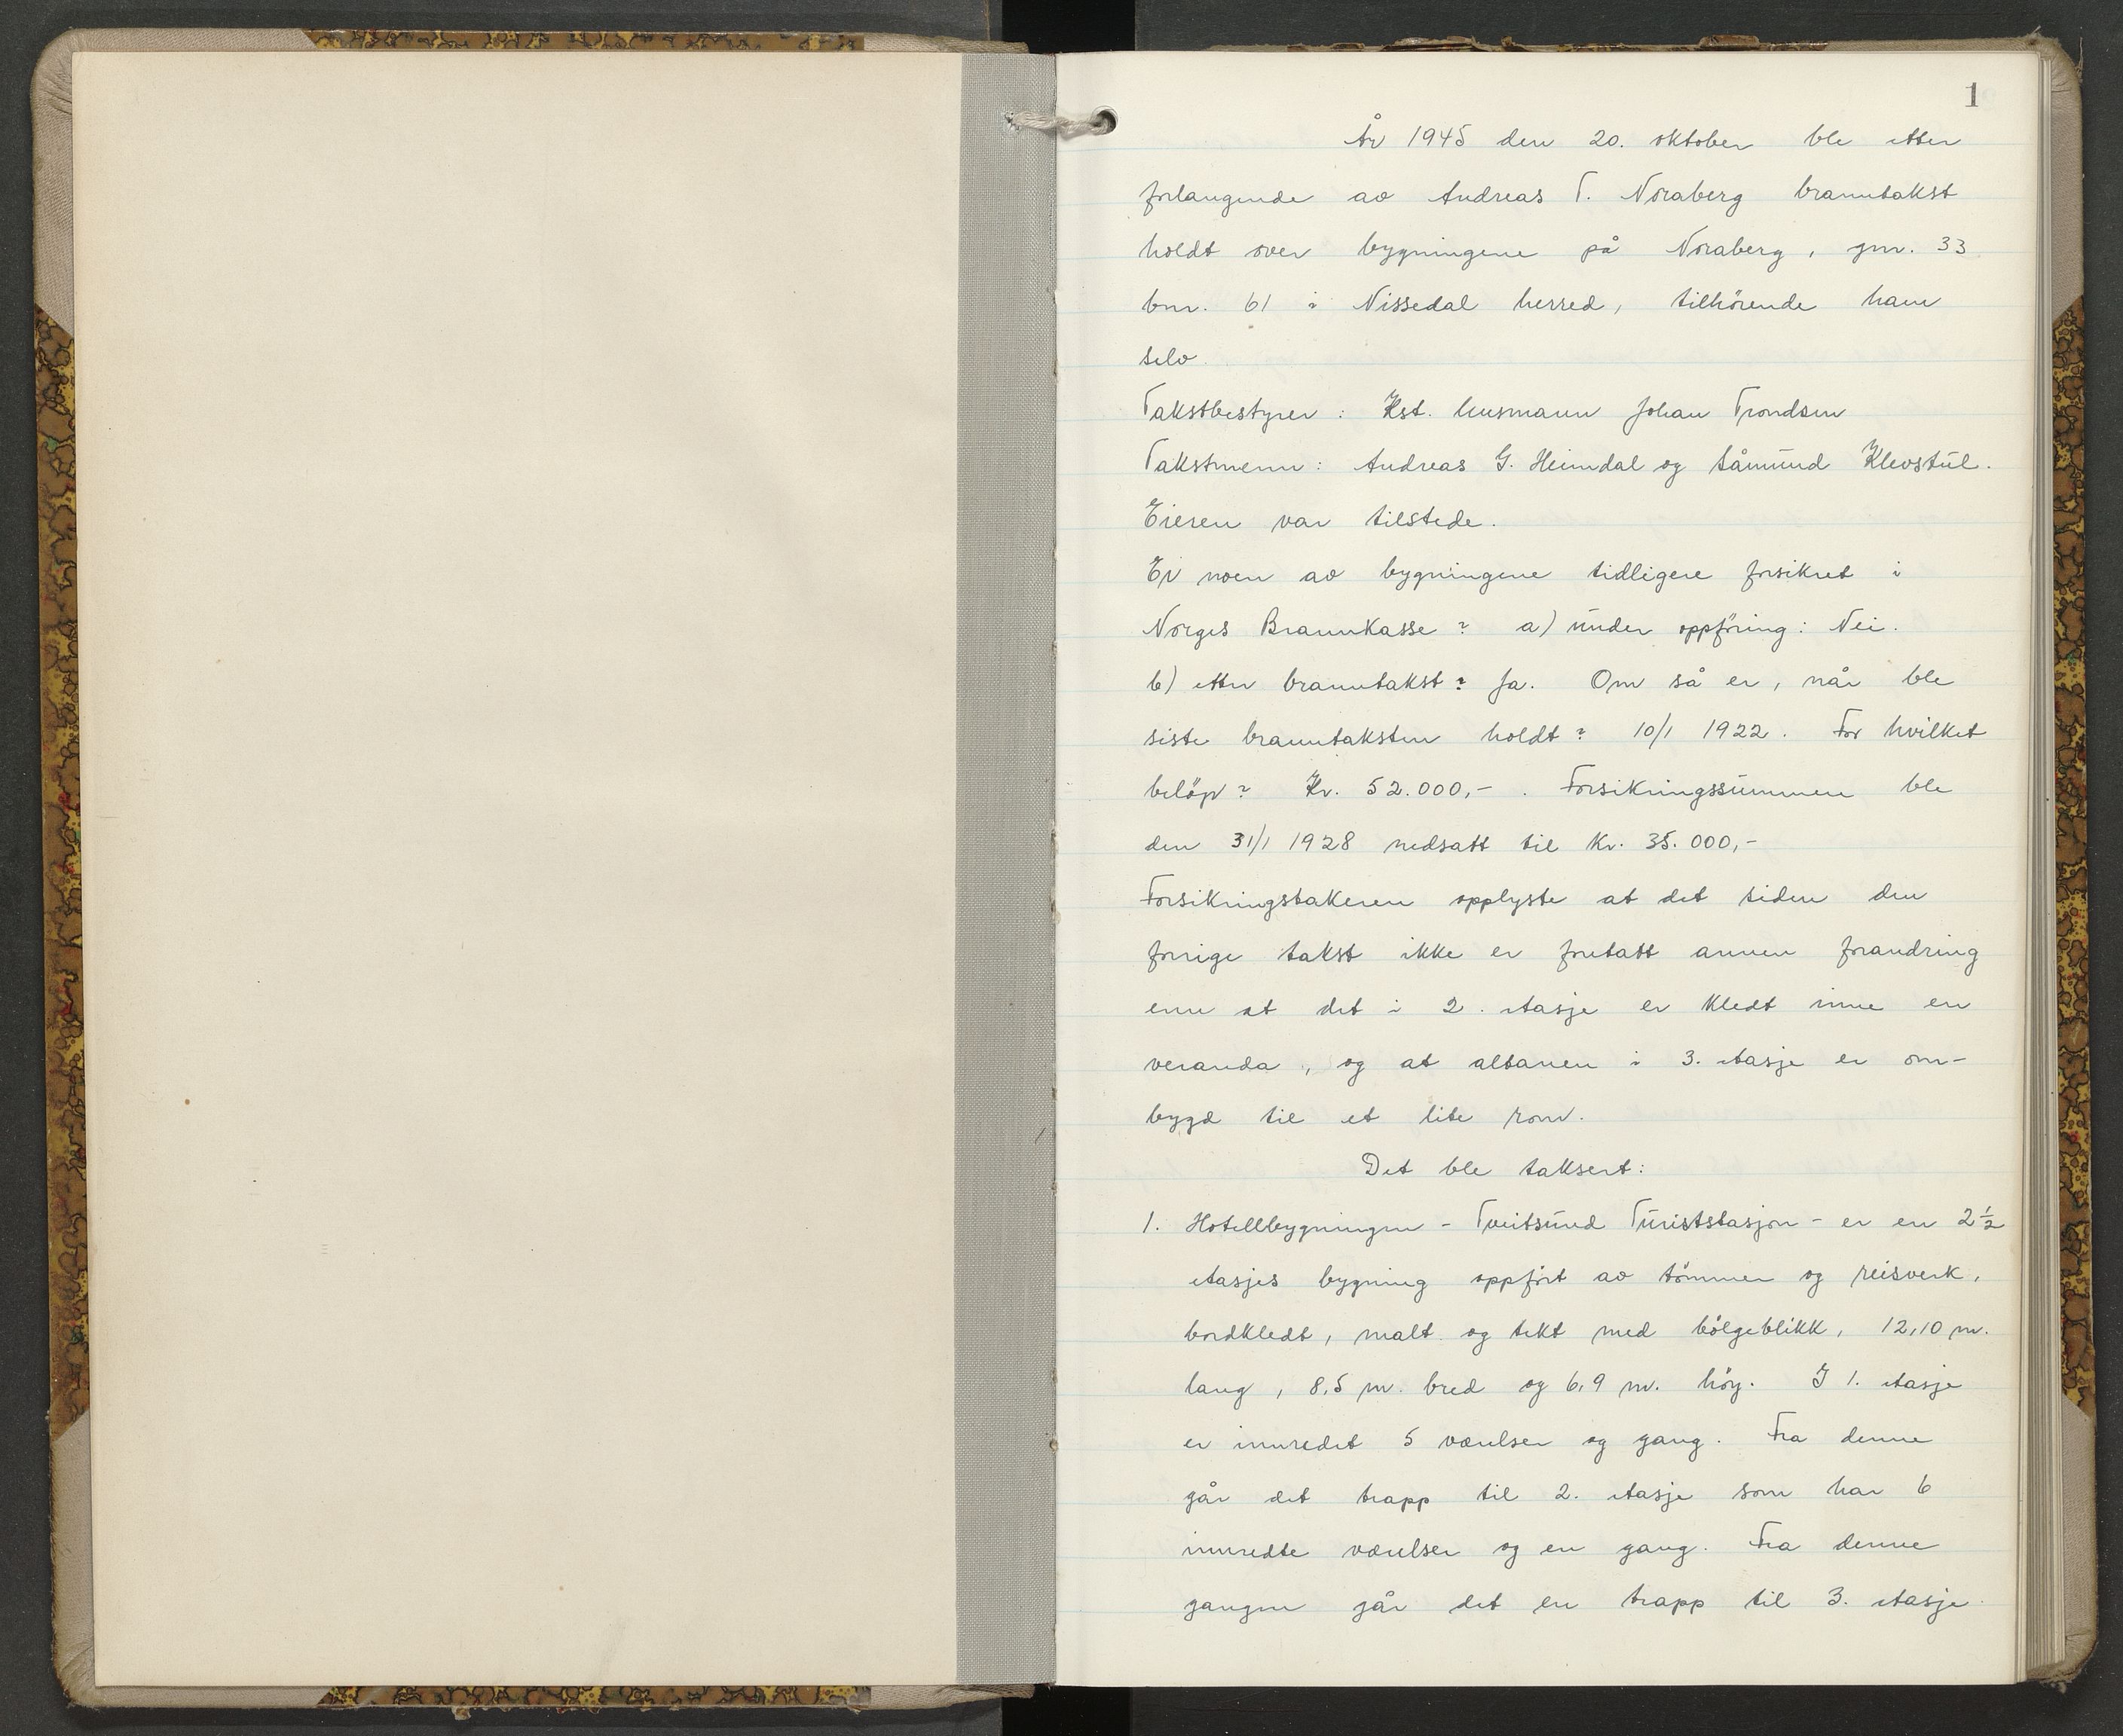 1
År 1945 den 20. oktober ble etter
forlangende av Andreas T. Noraberg branntakst
holdt over bygningene på Noraberg, gnr. 33
bnr. 61 i Nissedal herred, tilhörende ham
selv.
Takstbestyrer: Kst. lensmann Johan Trondsen
Takstmenn: Andreas G. Heimdal og Såmund Klevstul.
Eieren var tilstede.
Er noen av bygningene tidligere forsikret i
Norges Brannkasse? a) under oppföring: Nei.
b) etter branntakst? Ja. Om så er, når ble
siste branntaksten holdt? 10/1 1922. For hvilket
belöp? Kr. 52.000,-. Forsikringssummen ble
den 31/1 1928 nedsatt til kr. 35.000,-
Forsikringstakeren opplyste at det siden den
forrige takst ikke er foretatt annen forandring
enn at det i 2. etasje er kledt inne en
veranda, og at altanen i 3. etasje er om-
bygd til et lite rom.
Det ble taksert:
1. Hotellbygningen - Tveitsund Turiststasjon - er en 2½
etasjes bygning oppfört av tömmer og reisverk,
bordkledt, malt og tekt med bölgeblikk, 12,10 m.
lang, 8,5 m. bred og 6,9 m. höy. I 1. etasje
er innredet 5 værelser og gang. Fra denne
går det trapp til 2. etasje som har 6
innredte værelser og en gang. Fra denne
gangen går det en trapp til 3. etasje